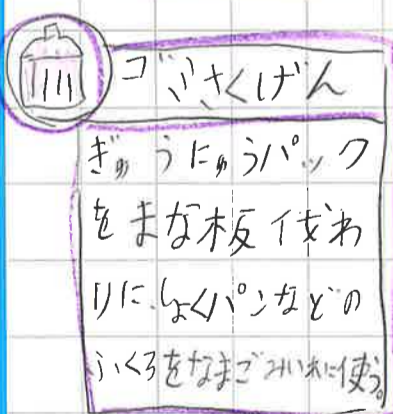 ゴミさくげん
ぎゅうにゅうパック
をまな板代わ
りに、しょくパンなどの
ふくろをなまごみいれに使う。